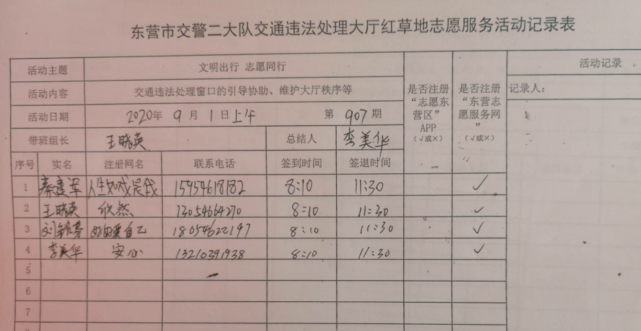 东营市交警二大队交通违法处理大厅红草地志愿服务活动记录表
活动主题 文明出行 志愿同行 是否注册“志愿东营区”APP（√或×） 是否注册“东营志愿服务网”（√或×） 活动记录
活动内容 交通违法处理窗口的引导协助、维护大厅秩序等 记录人：
活动日期 2020年 9月 1日上午 第 907 期
带班组长 王晓英 总结人 李美华
序号 实名 注册网名 联系电话 签到时间 签退时间
1 秦建军 15954618182 8:10 11:30 ✓
2 王晓英 欣然 13054664270 8:10 11:30 ✓
3 18054622197 8:10 11:30 ✓
4 李美华 安心 13210391938 8:10 11:30 ✓
5
6
7
8